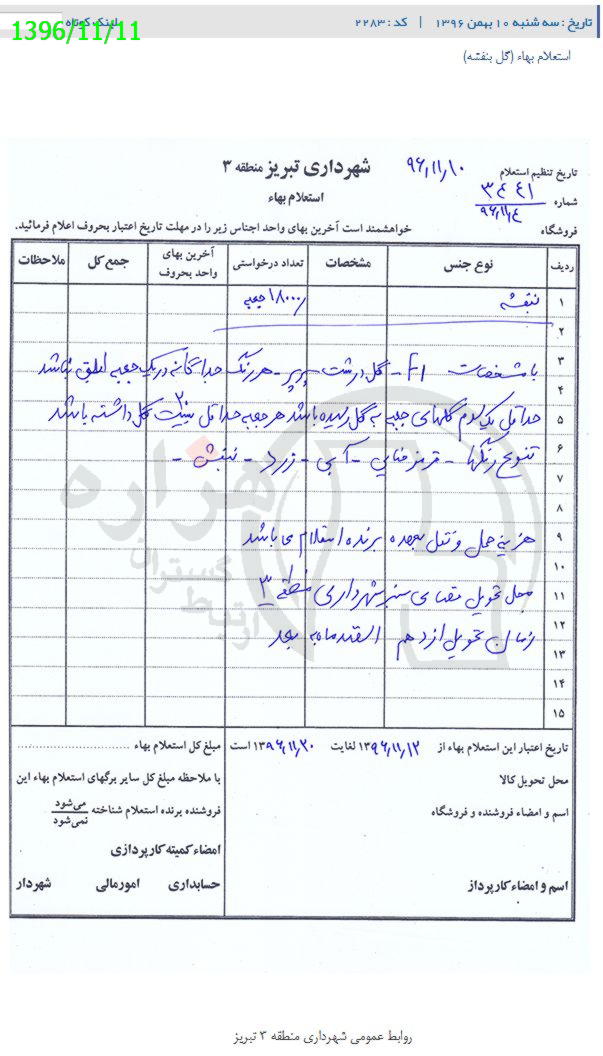 تاریخ : سه شنبه ۱۰ بهمن ۱۳۹۶ | کد : ۲۲۸۳
لینک کوتاه
1396/11/11
استعلام بهاء (گل بنفشه)
شهرداری تبریز منطقه ۳
استعلام بهاء
تاریخ تنظیم استعلام ۹۶/۱۱/۱۰
شماره ۳۴۴۱
۹۶/۱۱/۴
فروشگاه
خواهشمند است آخرین بهای واحد اجناس زیر را در مهلت تاریخ اعتبار بحروف اعلام فرمائید.
ردیف نوع جنس مشخصات تعداد درخواستی آخرین بهای واحد بحروف جمع کل ملاحظات
۱ بنفشه ۱۸۰۰۰ جعبه
۲
۳ با مشخصات F1 - گل درشت پرپر - هر رنگ جداگانه در یک جعبه باشد
۴
۵ حداقل یک سوم گلهای جعبه به گل رسیده باشد هر جعبه حداقل ۲۰ گل داشته باشد
۶ تنوع رنگها - قرمز - آبی - زرد - بنفش -
۷
۸
۹ هزینه حمل و نقل بعهده برنده استعلام می باشد
۱۰
۱۱ محل تحویل فضای سبز شهرداری منطقه ۳
۱۲ زمان تحویل از دهم اسفندماه به بعد
۱۳
۱۴
۱۵
تاریخ اعتبار این استعلام بهاء از ۱۳۹۶/۱۱/۱۲ لغایت ۱۳۹۶/۱۱/۲۰ است
محل تحویل کالا
اسم و امضاء فروشنده و فروشگاه
اسم و امضاء کارپرداز
مبلغ کل استعلام بهاء ........................
با ملاحظه مبلغ کل سایر برگهای استعلام بهاء این
فروشنده برنده استعلام شناخته می‌شود
نمی‌شود
امضاء کمیته کارپردازی
حسابداری امورمالی شهردار
هزاره
گستران
ارتباط
روابط عمومی شهرداری منطقه ۳ تبریز